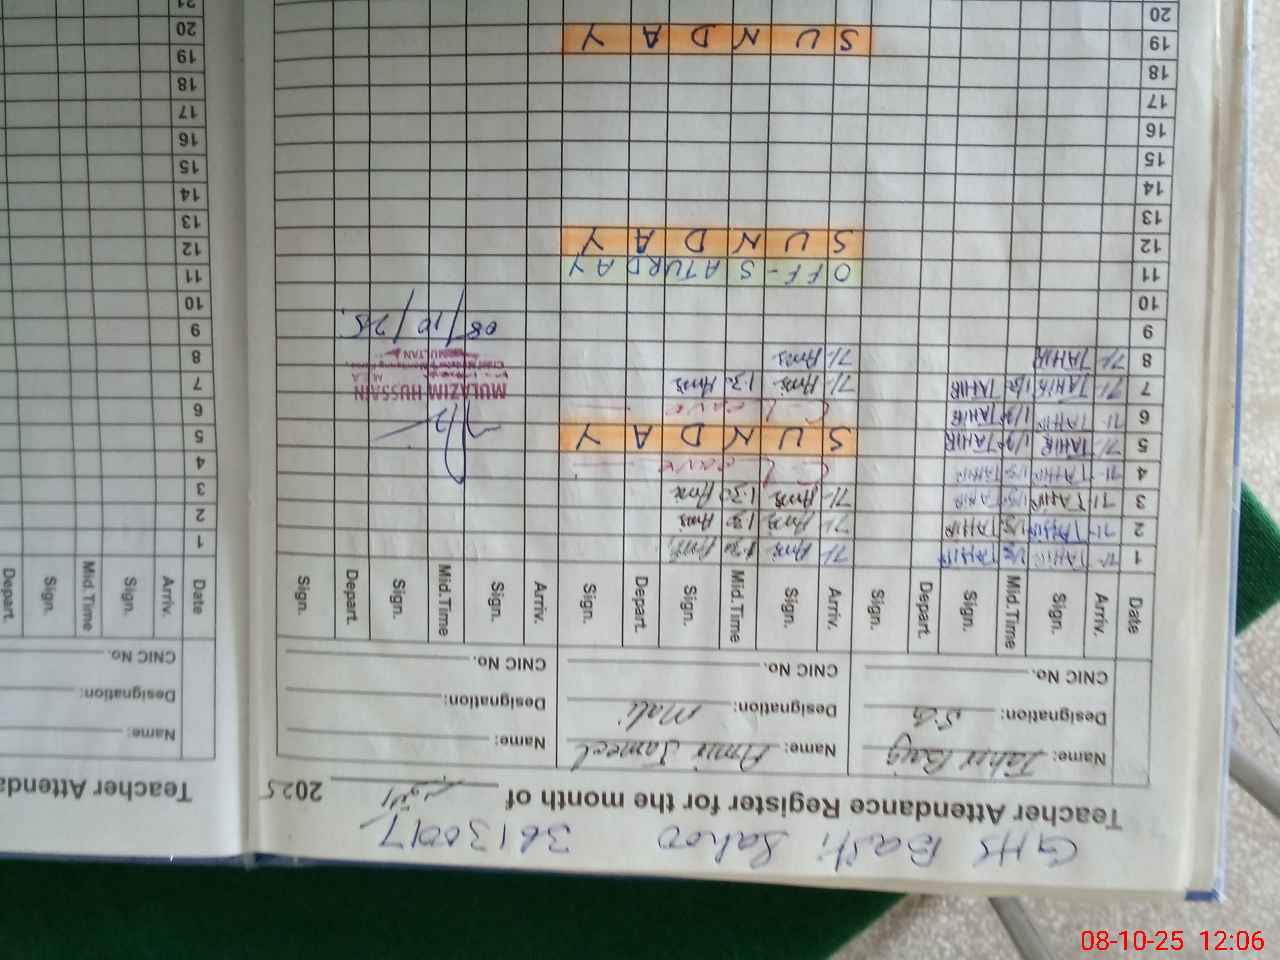 GHS Basti Sahoo 36130017
Teacher Attendance Register for the month of 2025
Name: Tahir Baig Name: Amir Jameel Name:
Designation: Designation: Mali Designation:
CNIC No. CNIC No. CNIC No.
Date Arriv. Sign. Mid.Time Sign. Depart. Sign. Arriv. Sign. Mid.Time Sign. Depart. Sign. Arriv. Sign. Mid.Time Sign. Depart. Sign.
1 TAHIR TAHIR 7/- 1:30
2 7/- TAHIR TAHIR 7/- 1:30
3 7/- TAHIR TAHIR 7/- 1:30
4 7/- TAHIR TAHIR Leave
5 7/- TAHIR TAHIR SUNDAY
6 7/- TAHIR TAHIR Leave
7 7/- TAHIR TAHIR 7/- 1:30
8 7/- TAHIR 7/-
MULAZIM HUSSAIN
MULTAN
08/10/25.
9
10
11 OFF-SATURDAY
12 SUNDAY
13
14
15
16
17
18
19 SUNDAY
20
Teacher Attenda
Name:
Designation:
CNIC No.
Date Arriv. Sign. Mid.Time Sign. Depart.
1
2
3
4
5
6
7
8
9
10
11
12
13
14
15
16
17
18
19
20
21
08-10-25 12:06